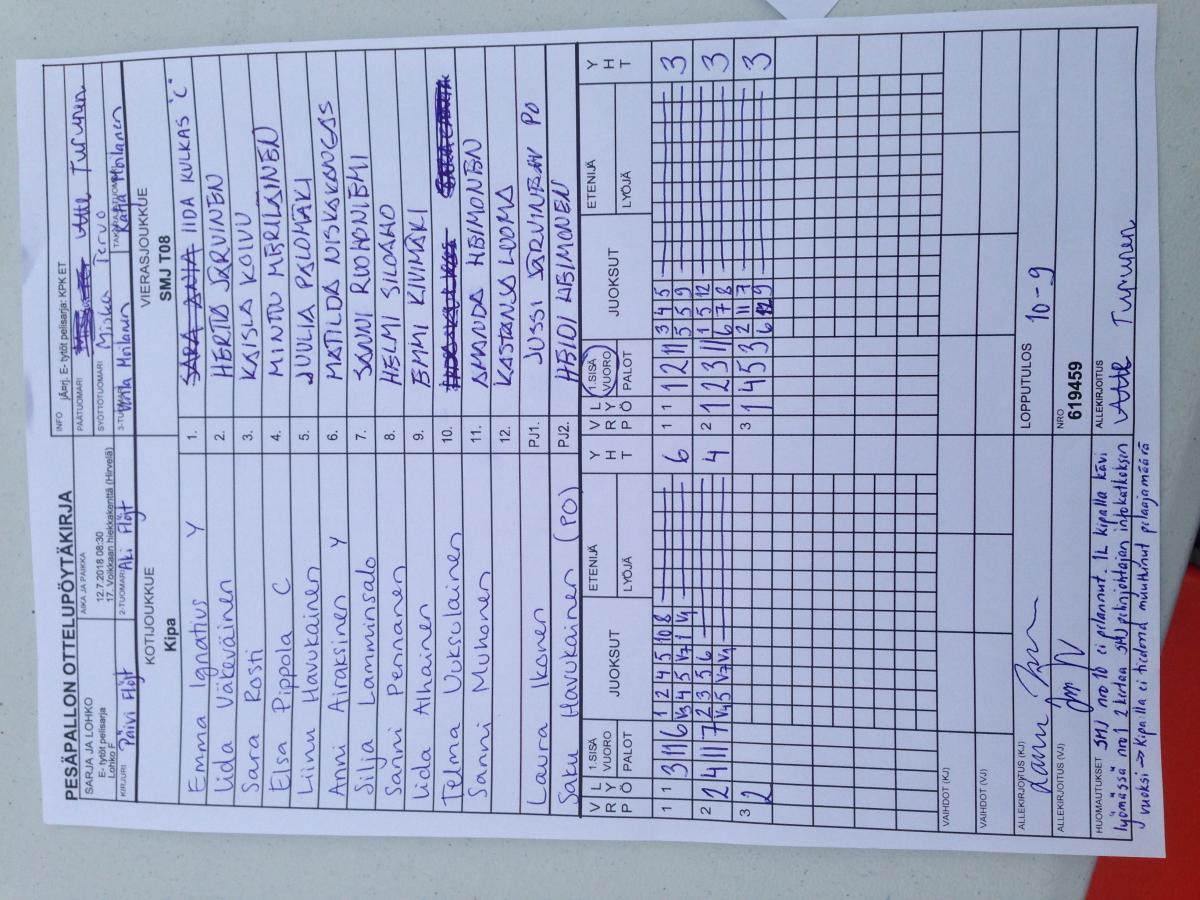 PESÄPALLON OTTELUPÖYTÄKIRJA
SARJA JA LOHKO
E- tytöt pelisarja
Lohko F
AIKA JA PAIKKA
12.7.2018 08:30
17. Voikkaan hiekkakenttä (Hirvelä)
INFO jÄ=rj. E- tytöt pelisarja: KPK ET
PÄÄTUOMARI Atte Turunen
SYÖTTÖTUOMARI Miska Tervo
KIRJURI Päivi Flöjt
2-TUOMARI Aki Flöjt
3-TUOMARI Moilanen
TAKARAJATUOMARI Katja Moilanen
KOTIJOUKKUE
Kipa
VIERASJOUKKUE
SMJ T08
Emma Ignatius Y
1.
SARA ANIA IIDA KULKAS "C"
Iida Väkeväinen
2.
HERTA JÄRVINEN
Sara Rosti
3.
KAISLA KOIVU
Elsa Pippola C
4.
MINTTU MERILÄINEN
Liinu Havukainen
5.
JUULIA PALOMÄKI
Anni Airaksinen Y
6.
MATILDA NISKAKANGAS
Silja Lamminsalo
7.
SANNI RUOHONIEMI
Sanni Pennanen
8.
HELMI SILOAHO
Iida Alhainen
9.
EMMI KIVIMÄKI
Telma Uuksulainen
10.
Sanni Muhonen
11.
AMANDA HEIMONEN
12.
KASTANJA LUOMA
Laura Ikonen
PJ1.
JUSSI JÄRVINEN PO
Saku Havukainen (PO)
PJ2.
HEIDI HEIMONEN
V L
R Y
P Ö
1.SISÄ
VUORO
PALOT
JUOKSUT
ETENIJÄ
LYÖJÄ
Y
H
T
V L
R Y
P Ö
1.SISÄ
VUORO
PALOT
JUOKSUT
ETENIJÄ
LYÖJÄ
Y
H
T
1 1 3 11 6 1 2 4 5 10 8 6
V3 4 5 V7 1 V1
1 1 2 11 3 4 5 3
5 5 9
2 2 4 11 7 2 3 5 6 4
V4 5 V7 V9
2 1 2 3 11 1 5 12 3
6 7 8
3 2
3 1 4 5 3 2 11 7 3
6 12 9
VAIHDOT (KJ)
VAIHDOT (VJ)
ALLEKIRJOITUS (KJ)
LOPPUTULOS 10-9
ALLEKIRJOITUS (VJ)
NRO
619459
HUOMAUTUKSET SMJ nro 10 ei pelannut. 1L kipalla kävi
lyömässä nro 1 2 kertaa SMJ pelinjohtajan infokatkoksen
vuoksi → Kipa:lla ei tiedossa muuttunut pelaajamäärä
ALLEKIRJOITUS
Atte Turunen